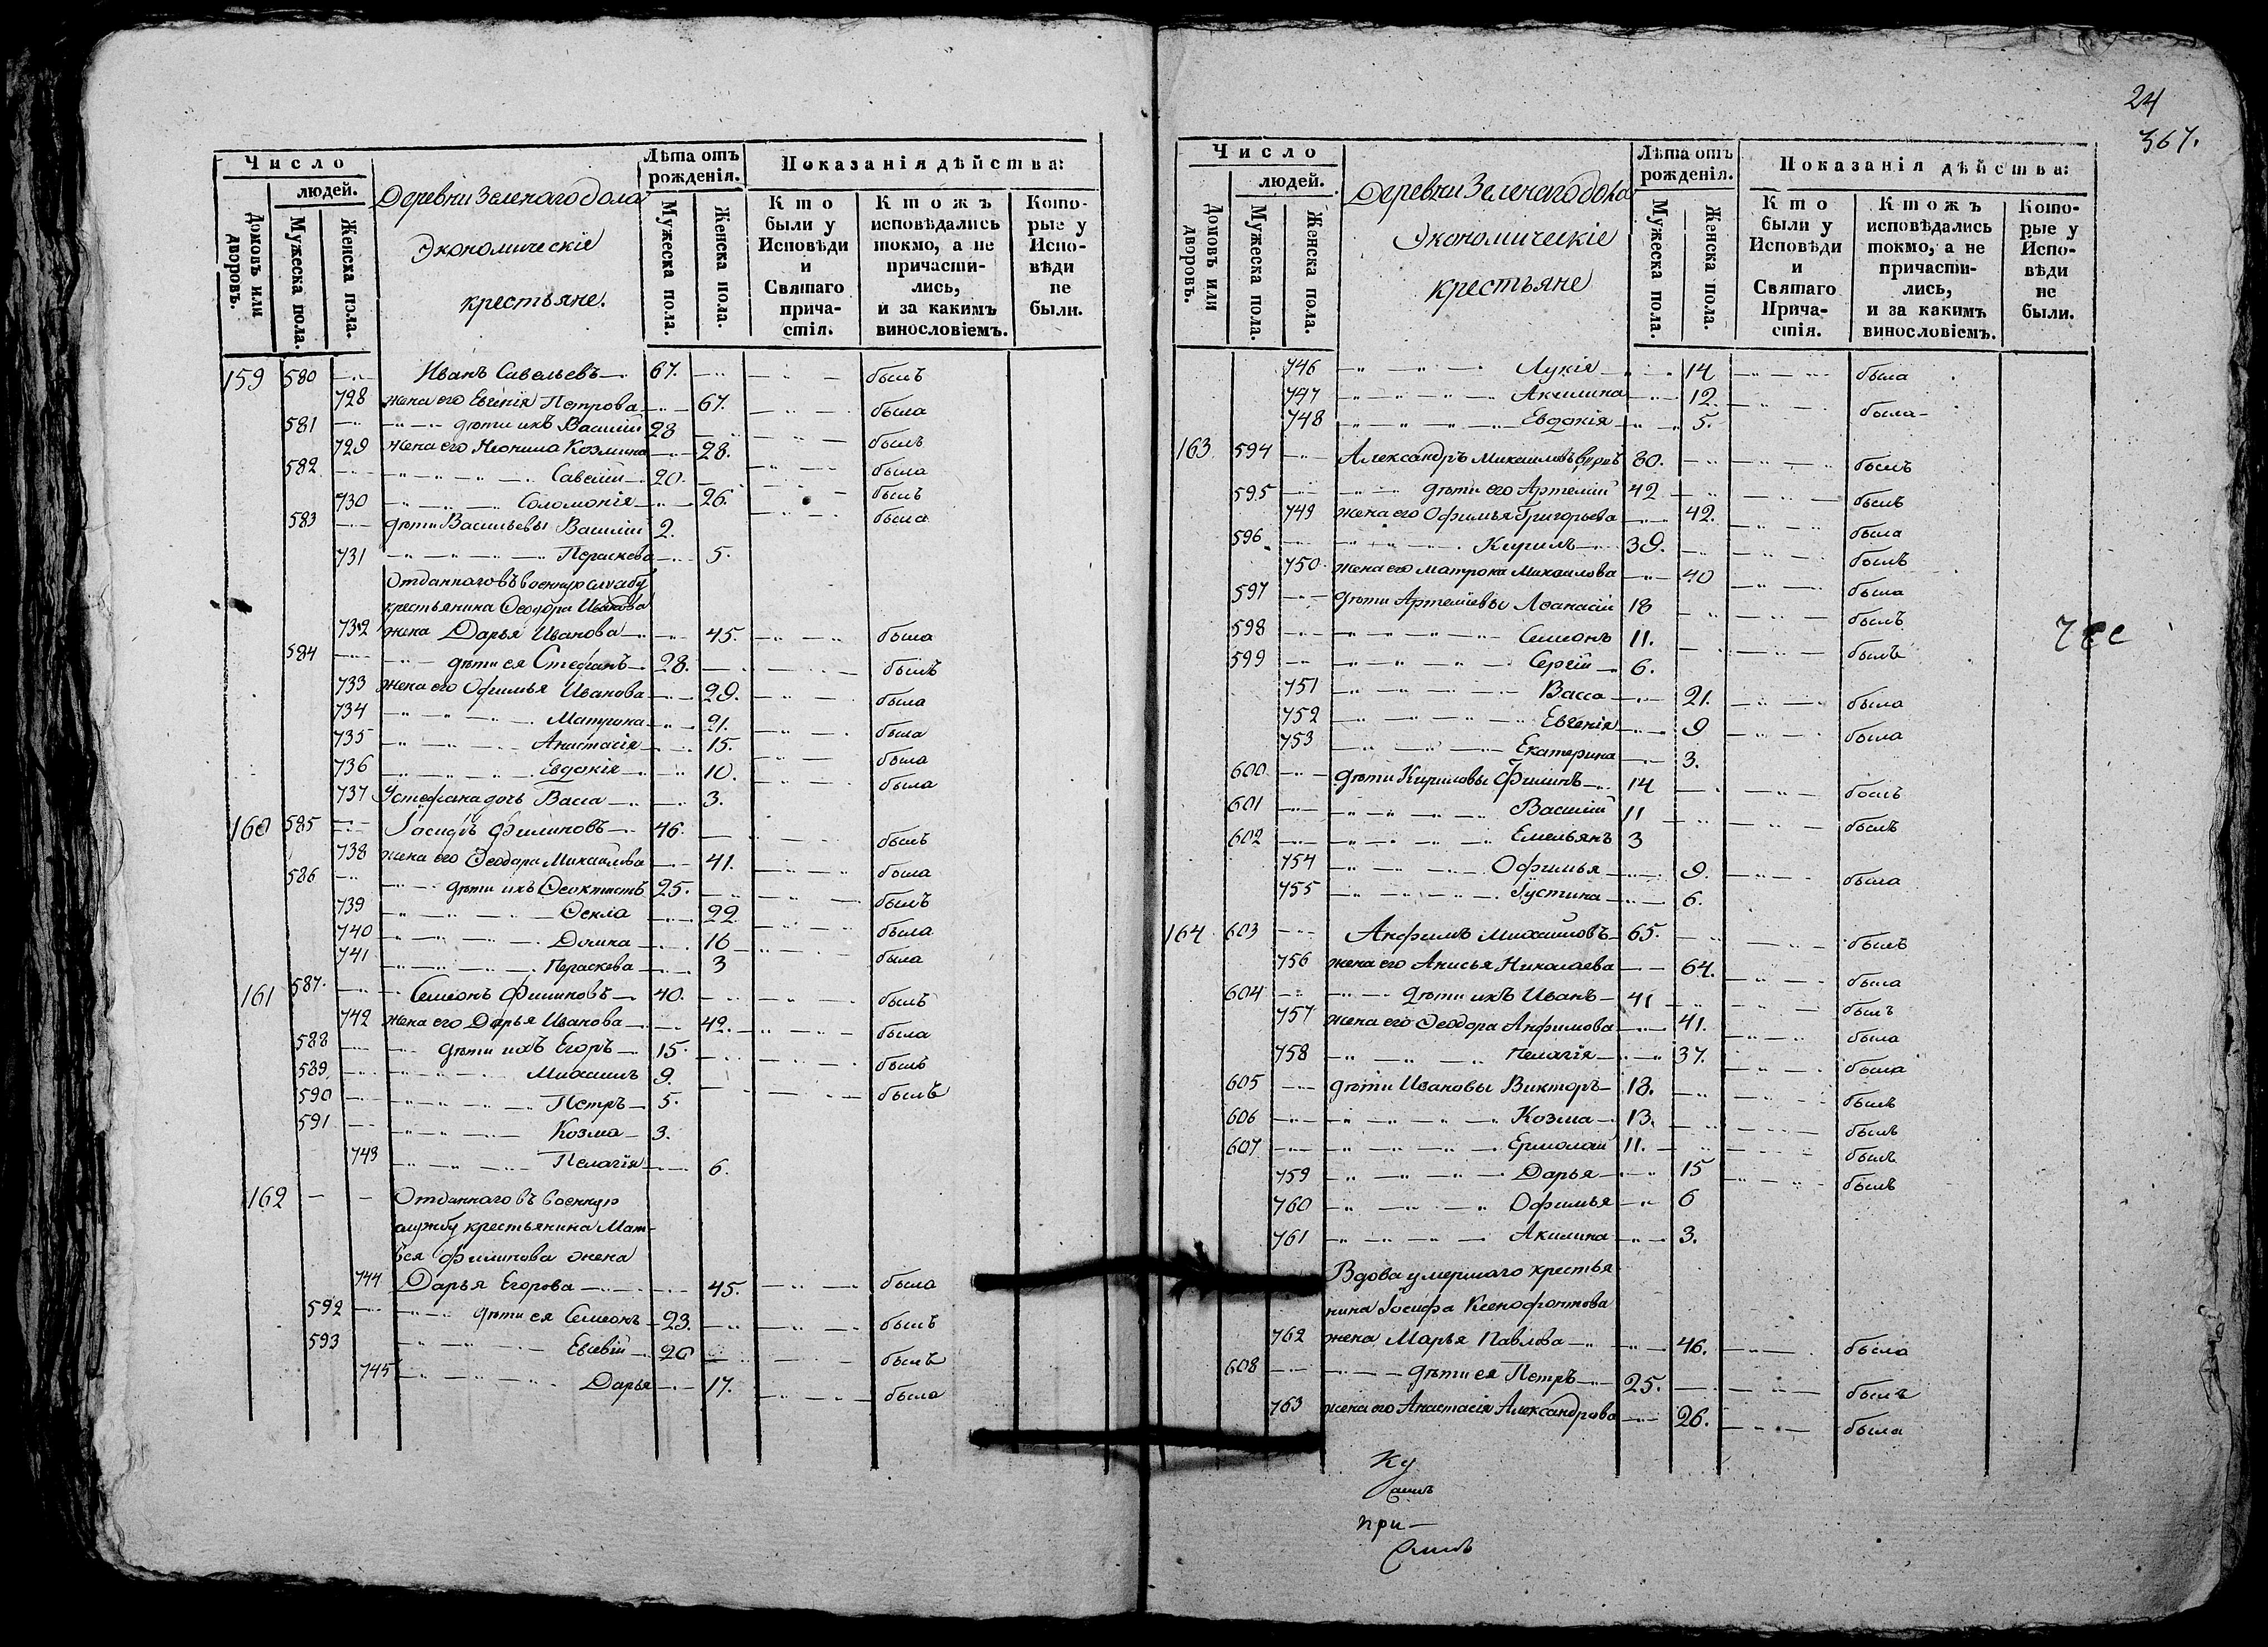 Число
людей.
Домовъ или дворовъ.
Мужеска пола.
Женска пола.
Деревни Зеленаго дола
Экономическіе
крестьяне.
Лѣта отъ рожденія.
Мужеска пола.
Женска пола.
Показанія дѣйства:
Кто были у Исповѣди и Святаго причастія.
Ктожъ исповѣдались токмо, а не причастились, и за какимъ винословіемъ.
Которые у Исповѣди не были.
159 580 Иванъ Савельевъ 67. былъ
728 жена его Евгенія Петрова 67. была
581 дѣти ихъ Василій 28 былъ
729 жена его Неонила Козмина 28. была
582 Савелій 20. былъ
730 Соломонія 26. была
583 дѣти Васильевы Василій 2.
731 Пераскева 5.
Отданнаго въ военную службу
крестьянина Ѳеодора Иванова
732 жена Дарья Иванова 45. была
584 дѣти ея Стефанъ 28. былъ
733 жена его Офимья Иванова 29. была
734 Матрона 21. была
735 Анастасія 15. была
736 Евдокія 10. была
737 У Стефана дочь Васса 3.
160 585 Іосифъ Филиповъ 46. былъ
738 жена его Ѳеодора Михайлова 41. была
586 дѣти ихъ Ѳеоктистъ 25. былъ
739 Ѳекла 22 была
740 Домна 16 была
741 Пераскева 3
161 587. Семіонъ Филиповъ 40. былъ
742 жена его Дарья Иванова 42. была
588 дѣти ихъ Егоръ 15. былъ
589. Михаилъ 9. былъ
590 Петръ 5.
591 Козма 3.
743 Пелагія 6.
162 Отданнаго въ военную
службу крестьянина Мат-
вея Филипова жена
744 Дарья Егорова 45. была
592 дѣти ея Семіонъ 23. былъ
593 Евсевій 20 былъ
745 Дарья 17. была
24
367.
Число
людей.
Домовъ или дворовъ.
Мужеска пола.
Женска пола.
Деревни Зеленаго дола
Экономическіе
крестьяне
Лѣта отъ рожденія.
Мужеска пола.
Женска пола.
Показанія дѣйства:
Кто были у Исповѣди и Святаго Причастія.
Ктожъ исповѣдались токмо, а не причастились, и за какимъ винословіемъ.
Которые у Исповѣди не были.
746 Лукія 14 была
747 Акилина 12. была
748 Евдокія 5.
163 594 Александръ Михаиловъ 80. былъ
595 дѣти его Артемій 42 былъ
749 жена его Офимья Григорьева 42. была
596 Кирилъ 39. былъ
750 жена его Матрона Михаилова 40 была
597 дѣти Артеміевы Аѳанасій 18 былъ
598 Семіонъ 11. былъ
599 Сергій 6.
751 Васса 21. была
752 Евгенія 9 была
753 Екатерина 3.
600 дѣти Кириловы Филипъ 14 былъ
601 Василій 11 былъ
602 Емельянъ 3
754 Офимья 9. была
755 Іустина 6.
164 603 Анфимъ Михаиловъ 65. былъ
756 жена его Анисья Николаева 64. была
604 дѣти ихъ Иванъ 41 былъ
757 жена его Ѳеодора Анфимова 41. была
758 Пелагія 37. была
605 дѣти Ивановы Викторъ 18. былъ
606 Козма 13. былъ
607 Ермолай 11. былъ
759 Дарья 15 былъ
760 Офимья 6
761 Акилина 3.
Вдова умершаго крестья
нина Іосифа Ксенофонтова
762 жена Марья Павлова 46. была
608 дѣти ея Петръ 25. былъ
763 жена его Анастасія Александрова 26. была
при-